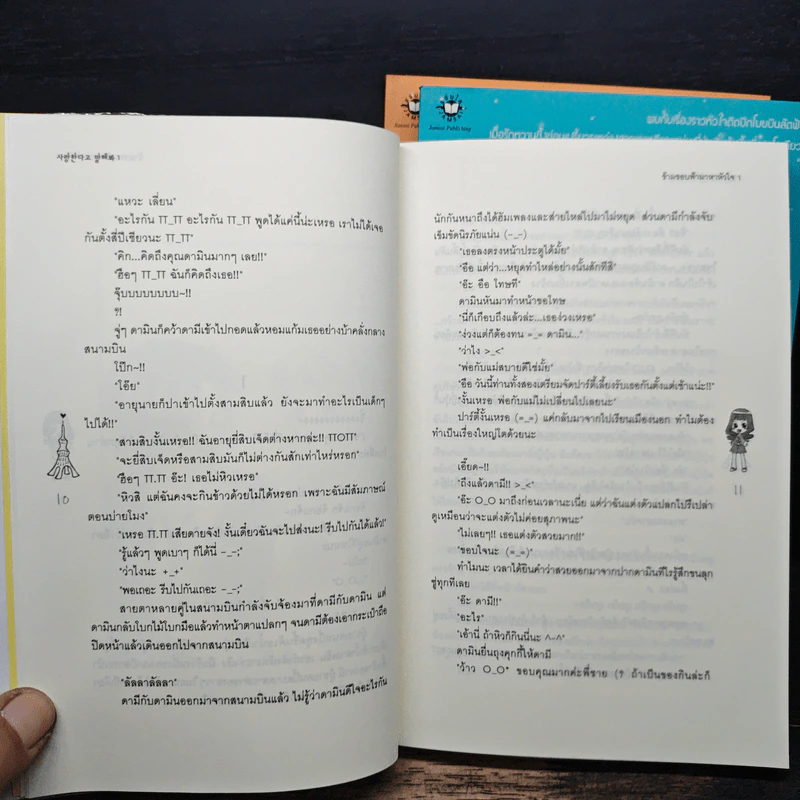 사랑한다고 말해봐 1
"แหวะ เลี่ยน"
"อะไรกัน TT_TT อะไรกัน TT_TT พูดได้แค่นี้น่ะเหรอ เราไม่ได้เจอ
กันตั้งสี่ปีเชียวนะ TT_TT"
"คิก...คิดถึงคุณดามินมากๆ เลย!!"
"ฮือๆ TT_TT ฉันก็คิดถึงเธอ!!"
จุ๊บบบบบบบบ~!!
?!
จู่ๆ ดามินก็คว้าดามีเข้าไปกอดแล้วหอมแก้มเธออย่างบ้าคลั่งกลาง
สนามบิน
โป๊ก~!!
"โอ๊ย"
"อายุนายก็ปาเข้าไปตั้งสามสิบแล้ว ยังจะมาทำอะไรเป็นเด็กๆ
ไปได้!!"
"สามสิบงั้นเหรอ!! ฉันอายุยี่สิบเจ็ดต่างหากล่ะ!! TTOTT"
"จะยี่สิบเจ็ดหรือสามสิบมันก็ไม่ต่างกันสักเท่าไหร่หรอก"
"ฮือๆ TT.TT อ๊ะ! เธอไม่หิวเหรอ"
"หิวสิ แต่ฉันคงจะกินข้าวด้วยไม่ได้หรอก เพราะฉันมีสัมภาษณ์
ตอนบ่ายโมง"
"เหรอ TT.TT เสียดายจัง! งั้นเดี๋ยวฉันจะไปส่งนะ! รีบไปกันได้แล้ว!"
"รู้แล้วๆ พูดเบาๆ ก็ได้นี่ -_-;"
"ว่าไงนะ +_+"
"พอเถอะ รีบไปกันเถอะ -_-;"
สายตาหลายคู่ในสนามบินกำลังจับจ้องมาที่ดามีกับดามิน แต่
ดามินกลับโบกไม้โบกมือแล้วทำหน้าตาแปลกๆ จนดามีต้องเอากระเป๋าถือ
ปิดหน้าแล้วเดินออกไปจากสนามบิน
"ลัลลาลัลลา"
ดามีกับดามินออกมาจากสนามบินแล้ว ไม่รู้ว่าดามินดีใจอะไรกัน
10
Jamsai Publishing
Jamsai Publishing
พบกับเรื่องราวหัวใจติดปีกโบยบินลัดฟ้
ข้ามขอบฟ้ามาหาหัวใจ 1
นักกันหนาถึงได้ฮัมเพลงและส่ายไหล่ไปมาไม่หยุด ส่วนดามีกำลังจับ
เข็มขัดนิรภัยแน่น (-_-)
"เธอลงตรงหน้าประตูได้มั้ย"
"อือ แต่ว่า...หยุดทำไหล่อย่างนั้นสักทีสิ"
"อ๊ะ อือ โทษที"
ดามินหันมาทำหน้าขอโทษ
"นี่ก็เกือบถึงแล้วล่ะ...เธอง่วงเหรอ"
"ง่วงแต่ก็ต้องทน =_= ดามิน..."
"ว่าไง >_<"
"พ่อกับแม่สบายดีใช่มั้ย"
"อือ วันนี้ท่านทั้งสองเตรียมจัดปาร์ตี้เลี้ยงรับเธอกันตั้งแต่เช้าแน่ะ!!"
"งั้นเหรอ พ่อกับแม่ไม่เปลี่ยนไปเลยนะ"
ปาร์ตี้งั้นเหรอ (=_=) แค่กลับมาจากไปเรียนเมืองนอก ทำไมต้อง
ทำเป็นเรื่องใหญ่โตด้วยนะ
เอี๊ยด~!!
"ถึงแล้วดามี!! >_<"
"อ๊ะ O_O มาถึงก่อนเวลานะเนี่ย แต่ว่าฉันแต่งตัวแปลกไปรึเปล่า
ดูเหมือนว่าจะแต่งตัวไม่ค่อยสุภาพนะ"
"ไม่เลยๆ!! เธอแต่งตัวสวยมาก!!"
"ขอบใจนะ (=_=)"
ทำไมนะ เวลาได้ยินคำว่าสวยออกมาจากปากดามินทีไรรู้สึกขนลุก
ซู่ทุกทีเลย
"อ๊ะ ดามี!!"
"อะไร"
"เอ้านี่ ถ้าหิวก็กินนี่นะ ^-^"
ดามินยื่นถุงคุกกี้ให้ดามี
"ว้าว O_O* ขอบคุณมากค่ะพี่ชาย (? ถ้าเป็นของกินล่ะก็
11